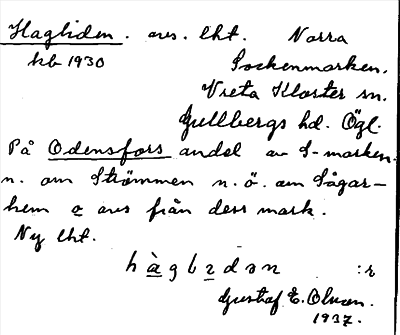 Hagliden. avs. lht. Norra
kb 1930 Sockenmarken.
Vreta Kloster sn.
Gullbergs hd. Ögl.
På Odensfors andel av S-marken
n. om Strömmen n.ö. om Sågar-
hem o avs från dess mark.
Ny lht.
hàgbɿdən :r
Gustaf E. Olsson.
1937.